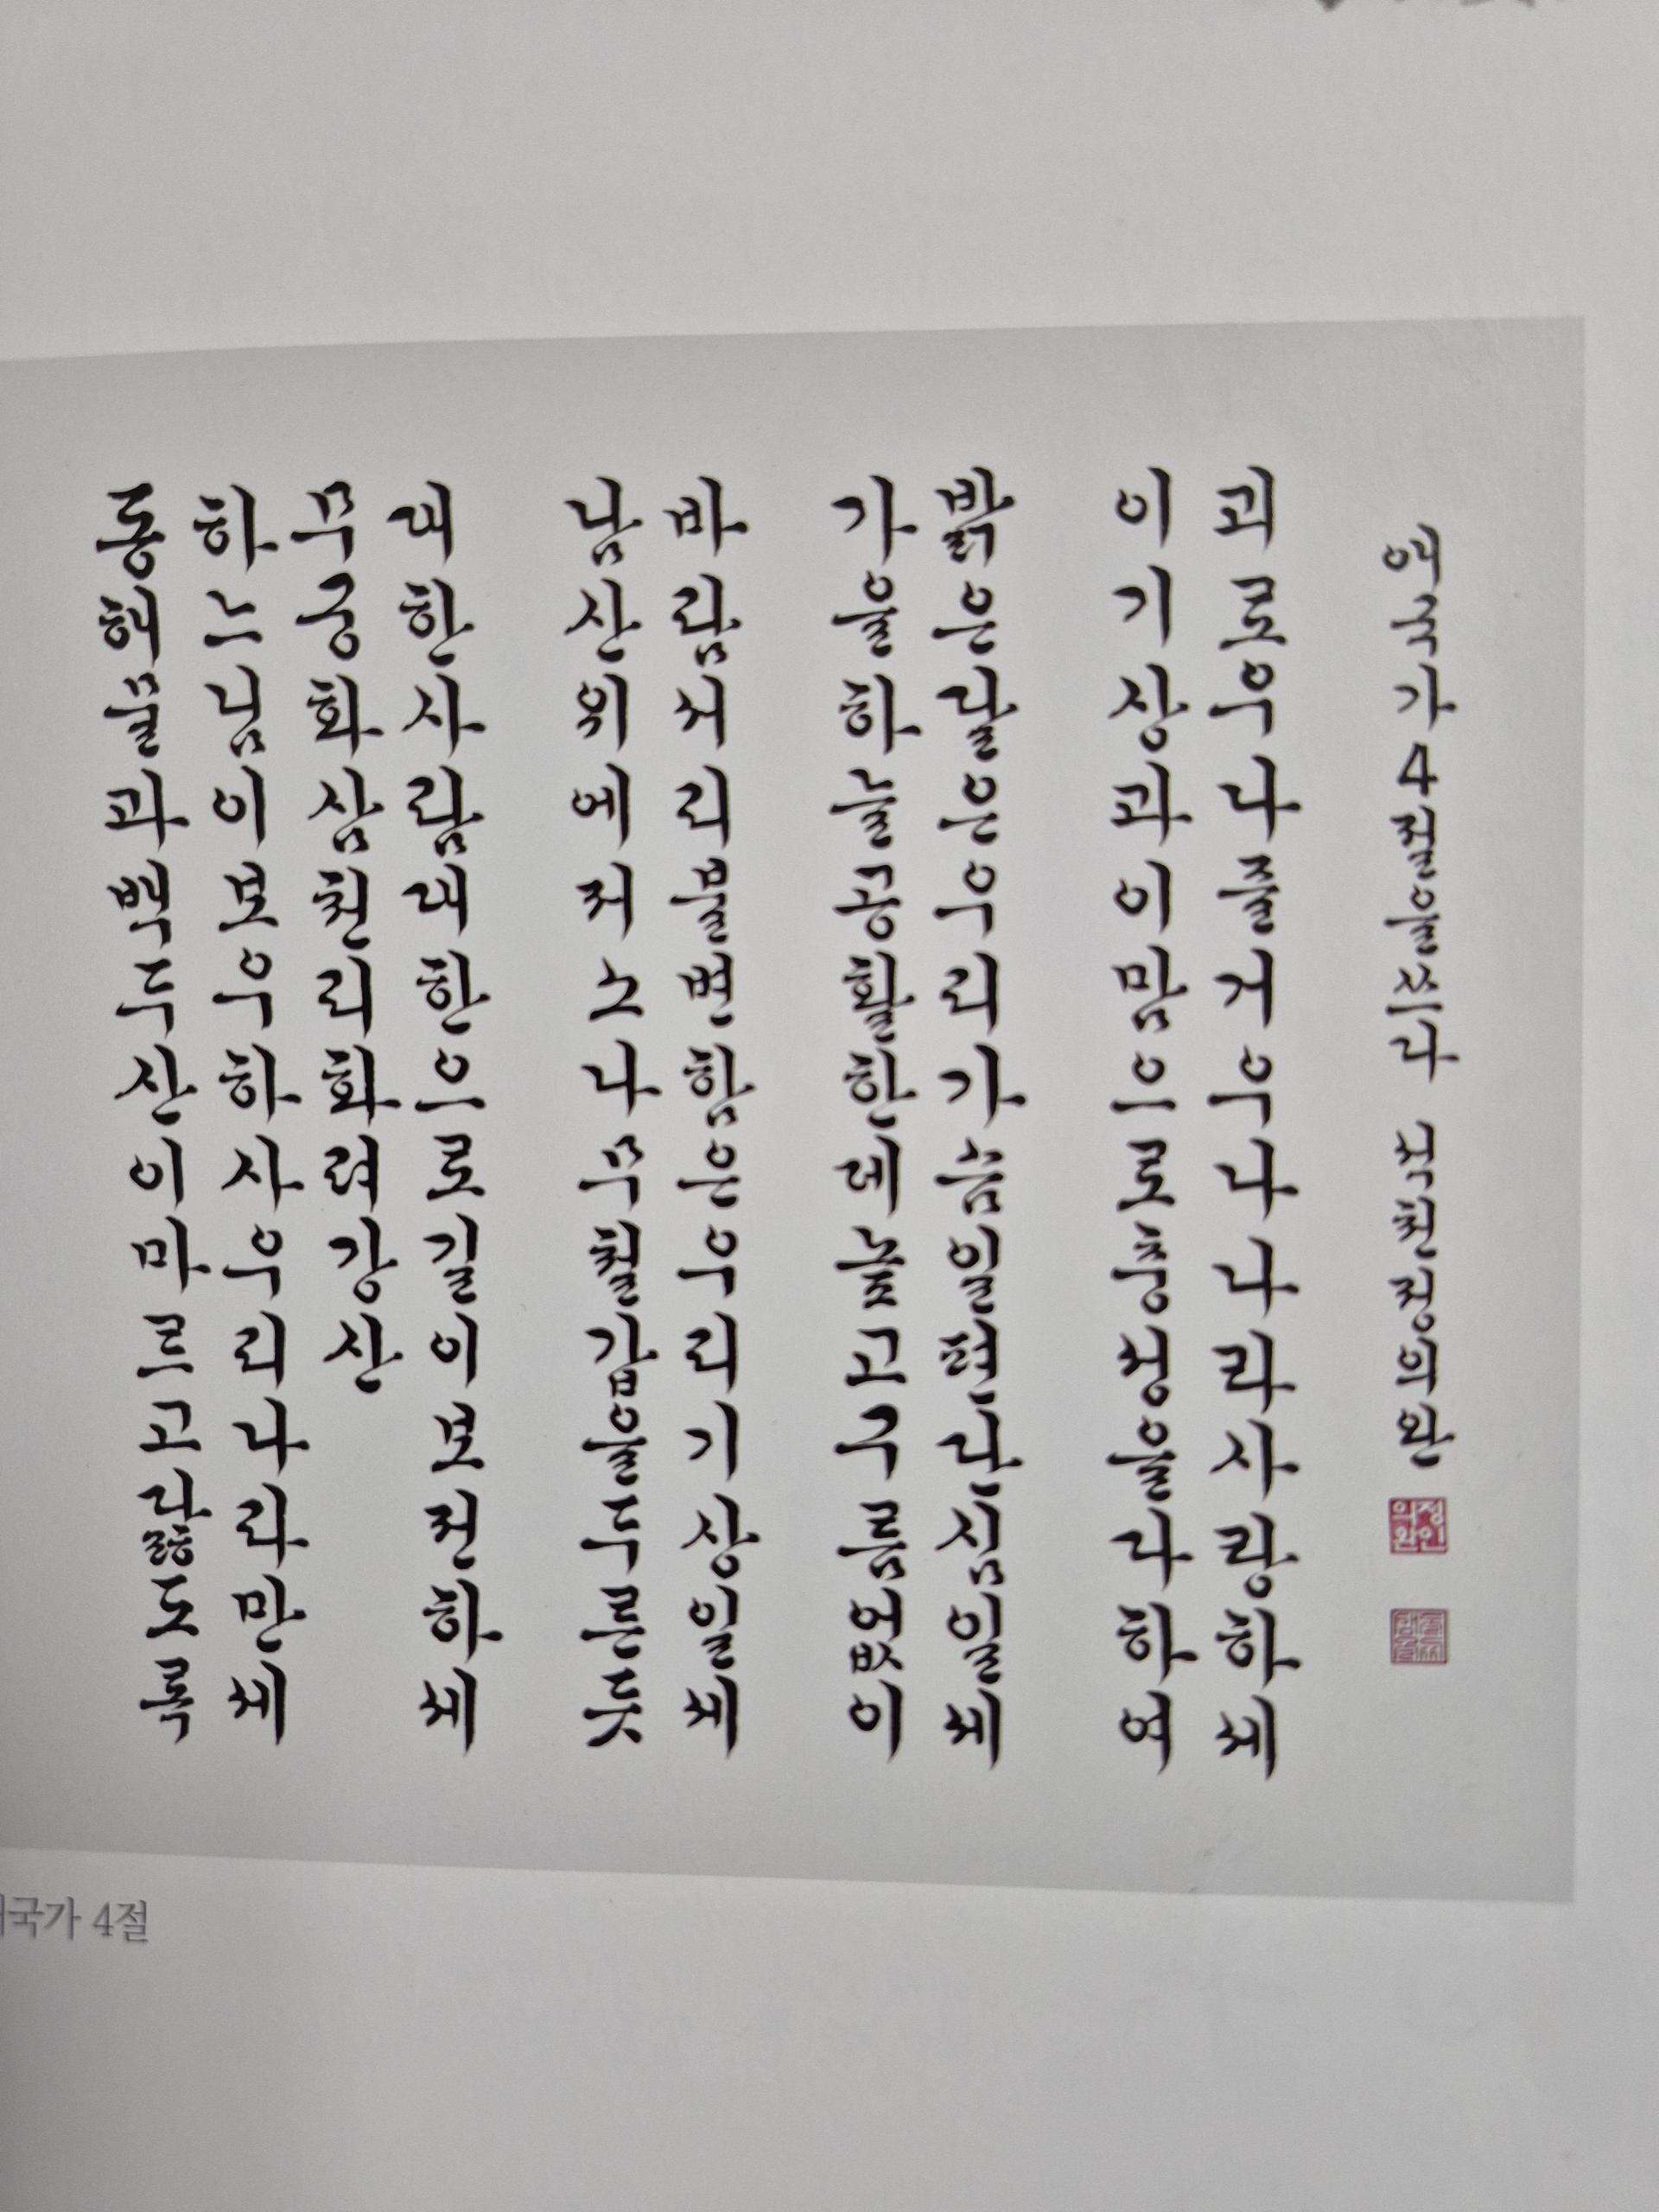 동해물과백두산이마르고닳도록
하느님이보우하사우리나라만세
무궁화삼천리화려강산
대한사람대한으로길이보전하세
남산위에저소나무철갑을두른듯
바람서리불변함은우리기상일세
가을하늘공활한데높고구름없이
밝은달은우리가슴일편단심일세
이기상과이맘으로충성을다하여
괴로우나즐거우나나라사랑하세
애국가4절을쓰다 정의완
정의완인
국가 4절